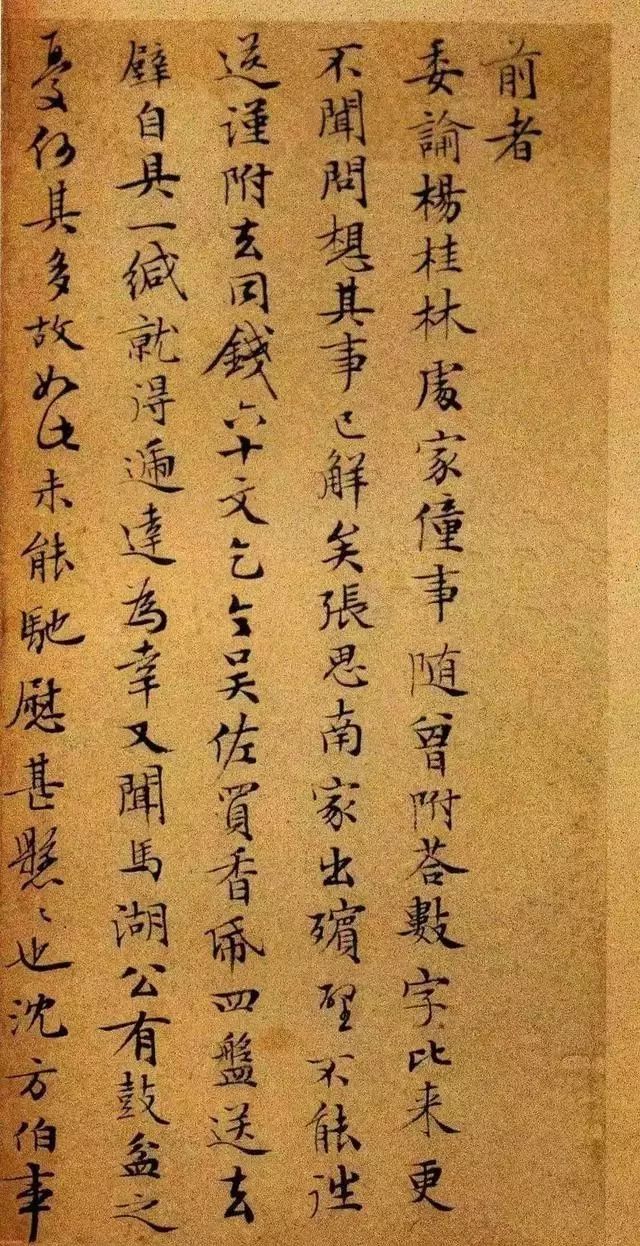 前者
委論楊桂林處家僮事随曾附荅數字比来更
不聞問想其事已解矣張思南家出殯不能往
送謹附去同錢六十文乞令吴佐買香帋四盤送去
璧自具一緘就得逓達為幸又聞馬湖公有鼓盆之
憂何其多故如此未能馳慰甚懸〻也沈方伯事